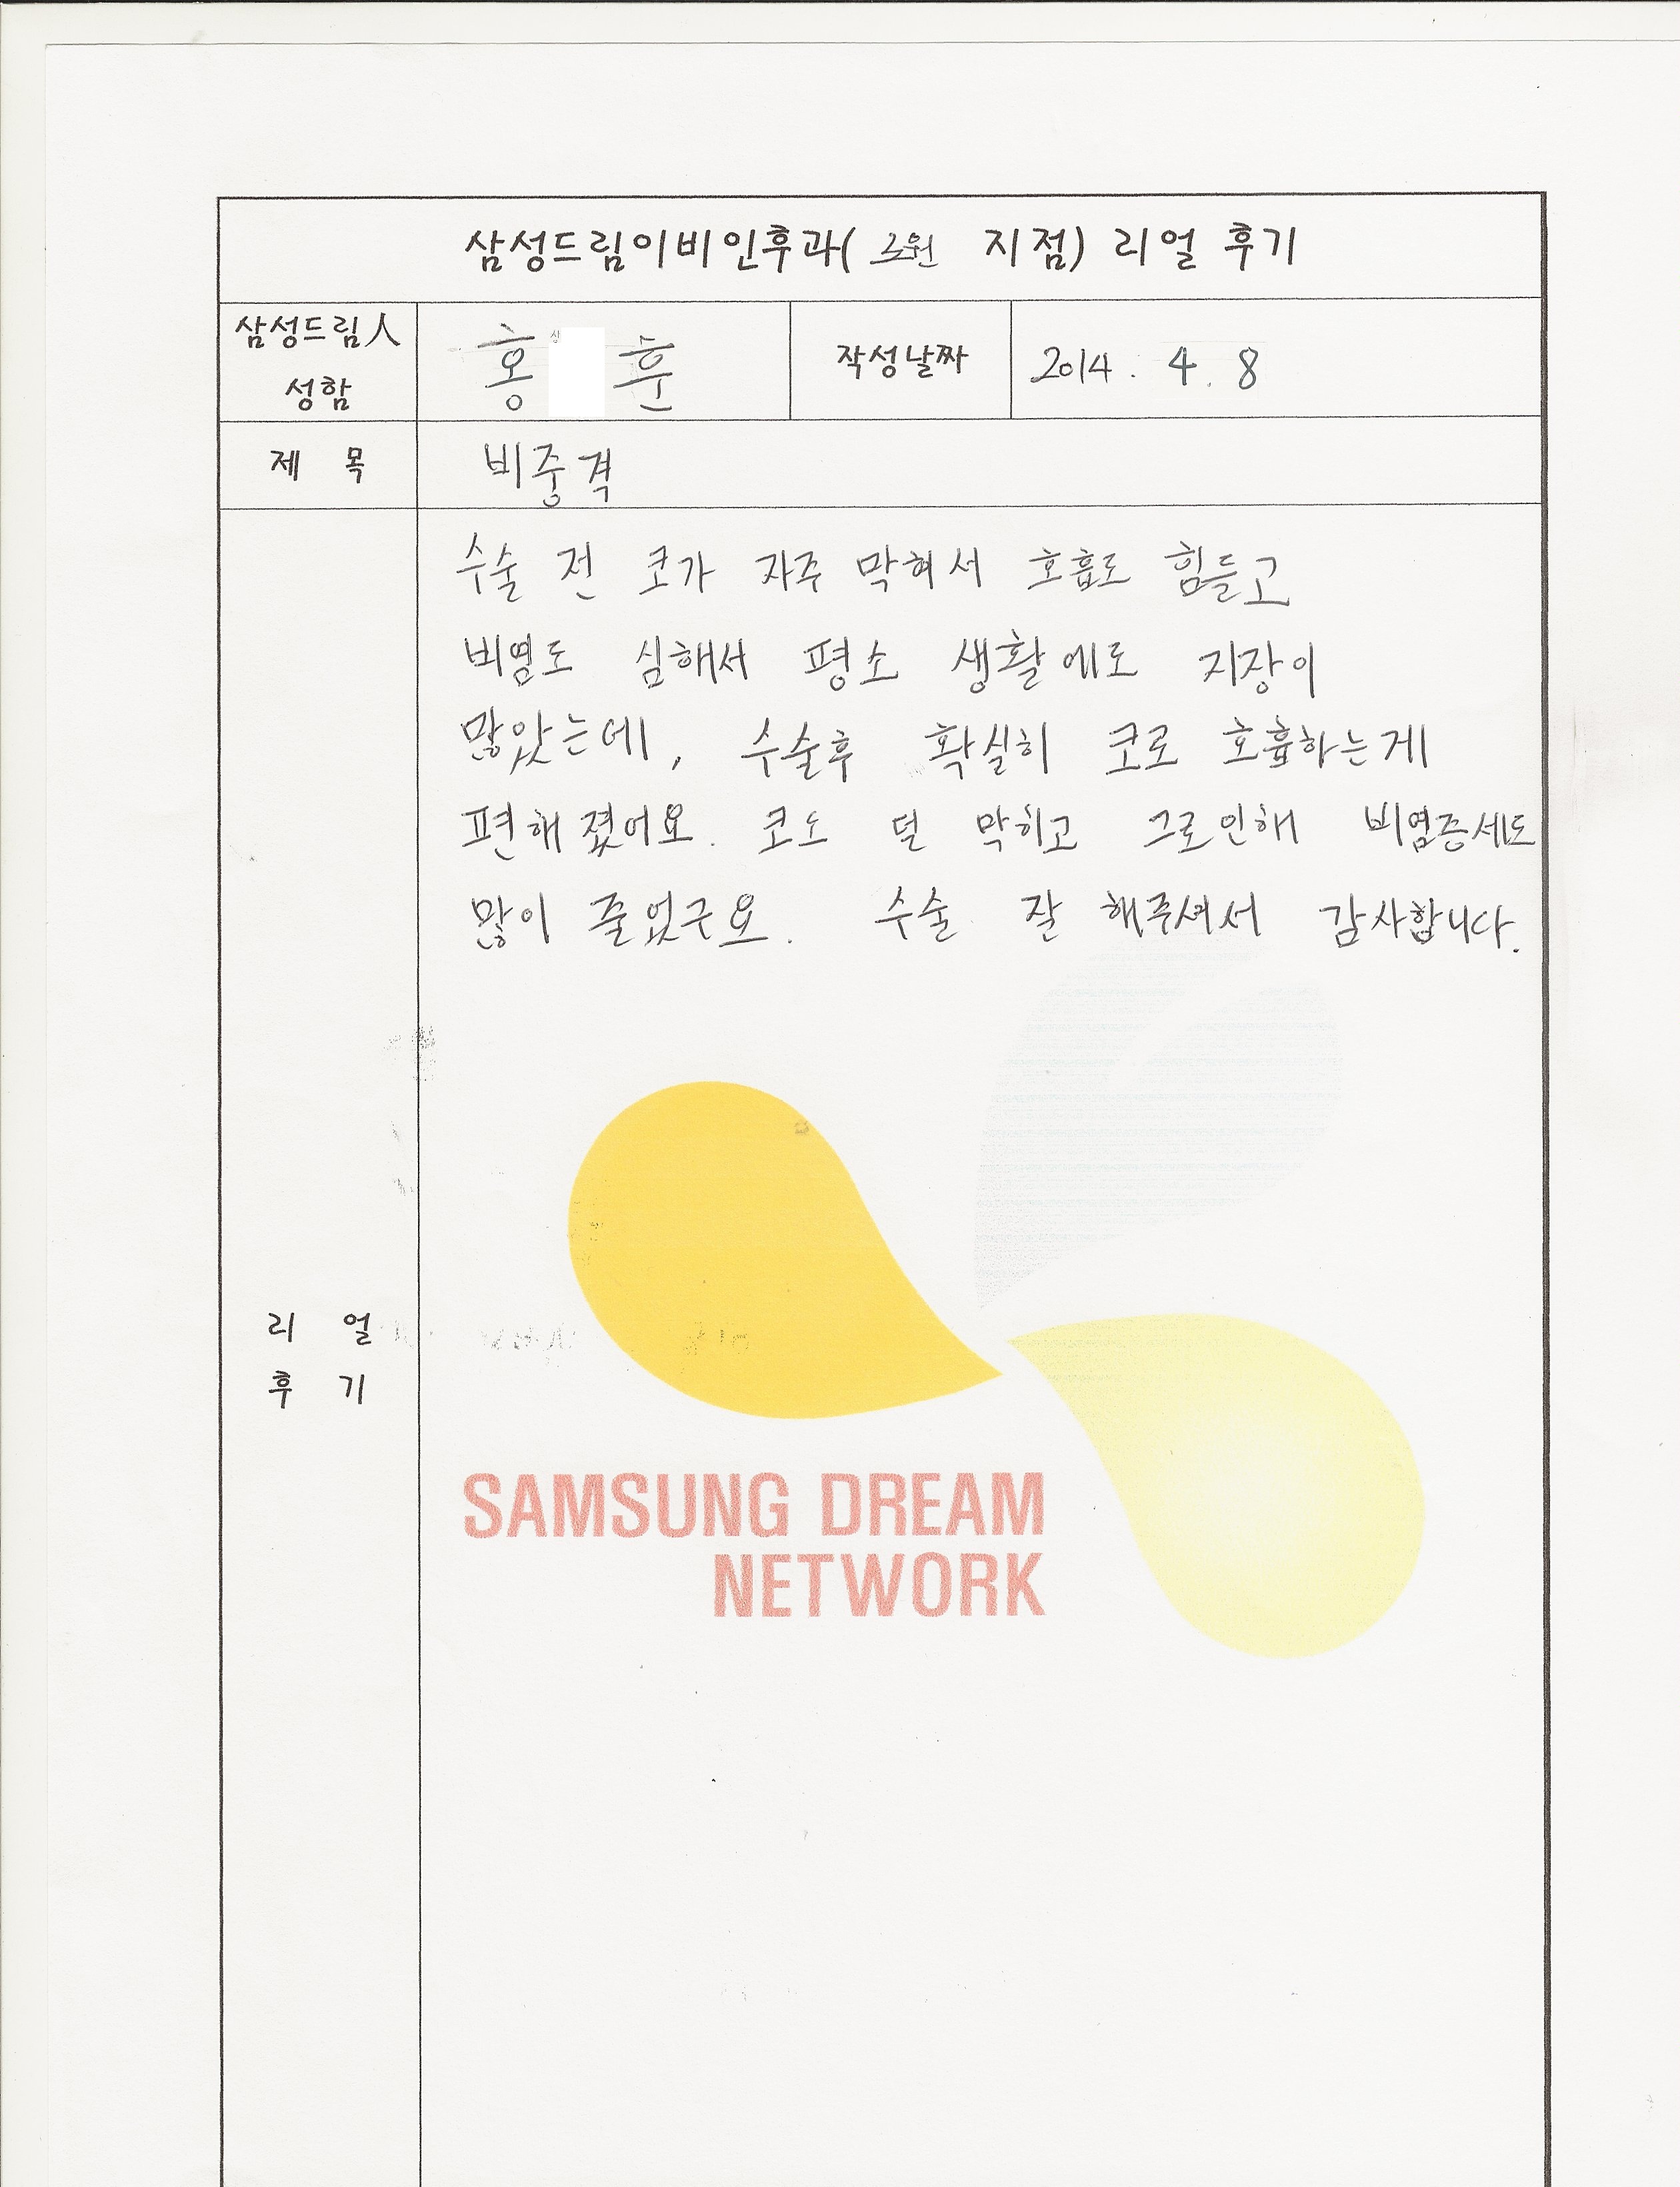 삼성드림이비인후과( 노원 지점) 리얼 후기
삼성드림人
성함
홍 훈
작성날짜
2014. 4. 8
제 목
비중격
수술 전 코가 자주 막혀서 호흡도 힘들고
비염도 심해서 평소 생활에도 지장이
많았는데, 수술후 확실히 코로 호흡하는게
편해졌어요. 코도 덜 막히고 그로인해 비염증세도
많이 줄었구요. 수술 잘 해주셔서 감사합니다.
리 얼
후 기
SAMSUNG DREAM
NETWORK